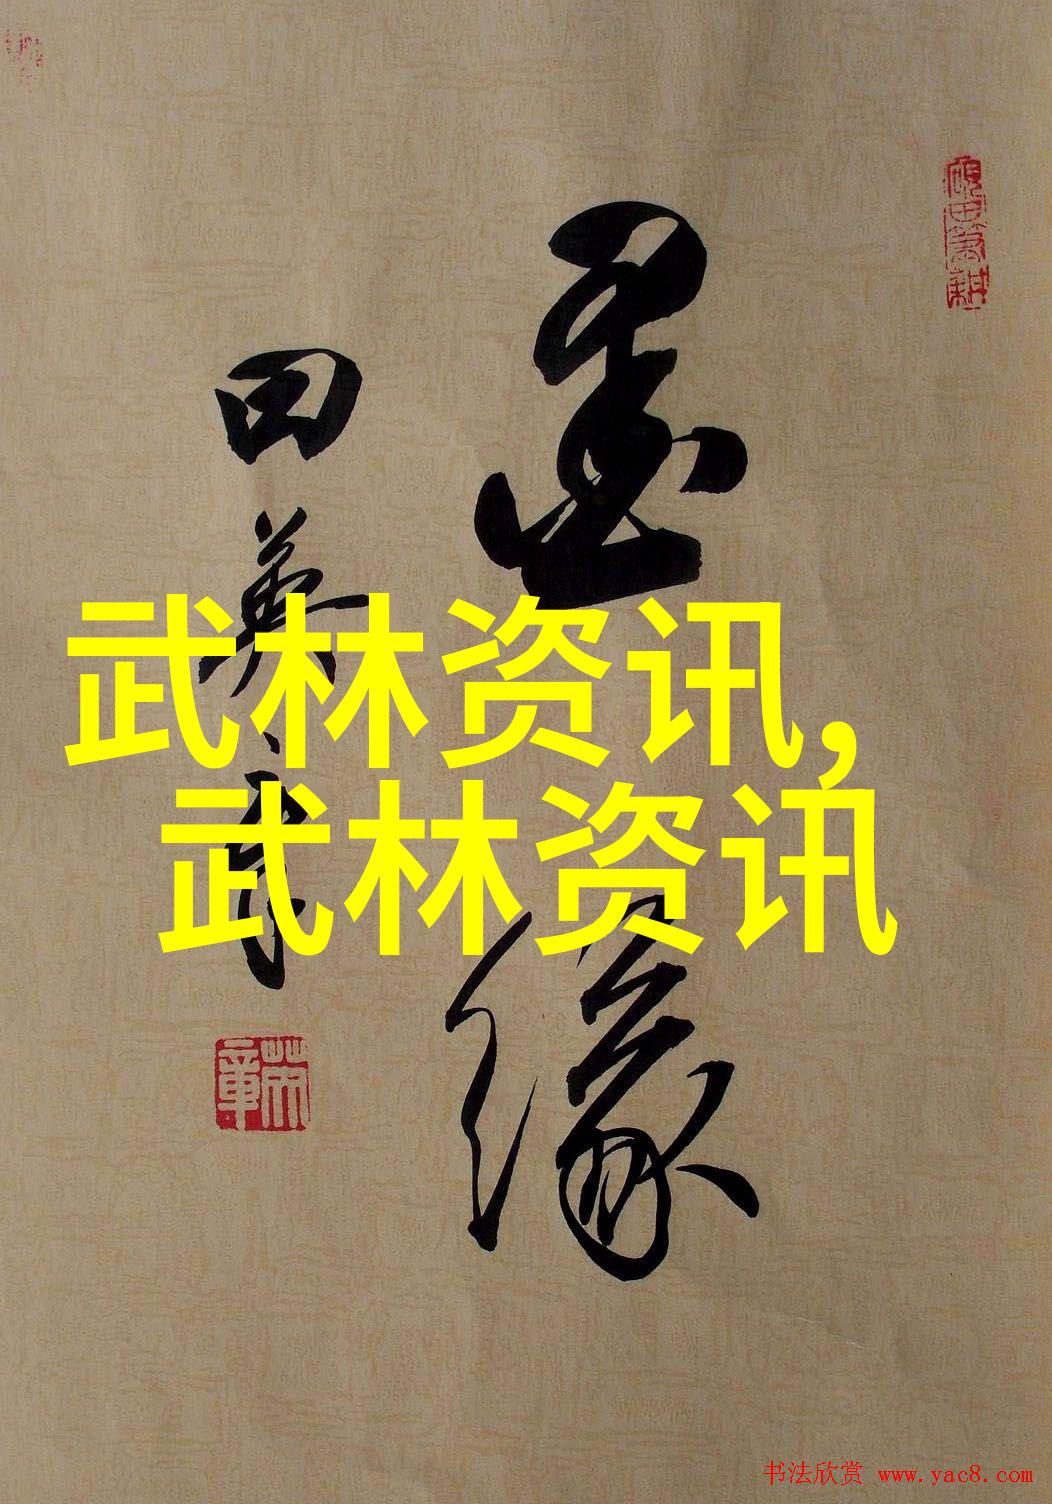 墨缘
田英章
武林资讯,
武林资讯
书法欣赏 www.yac8.com